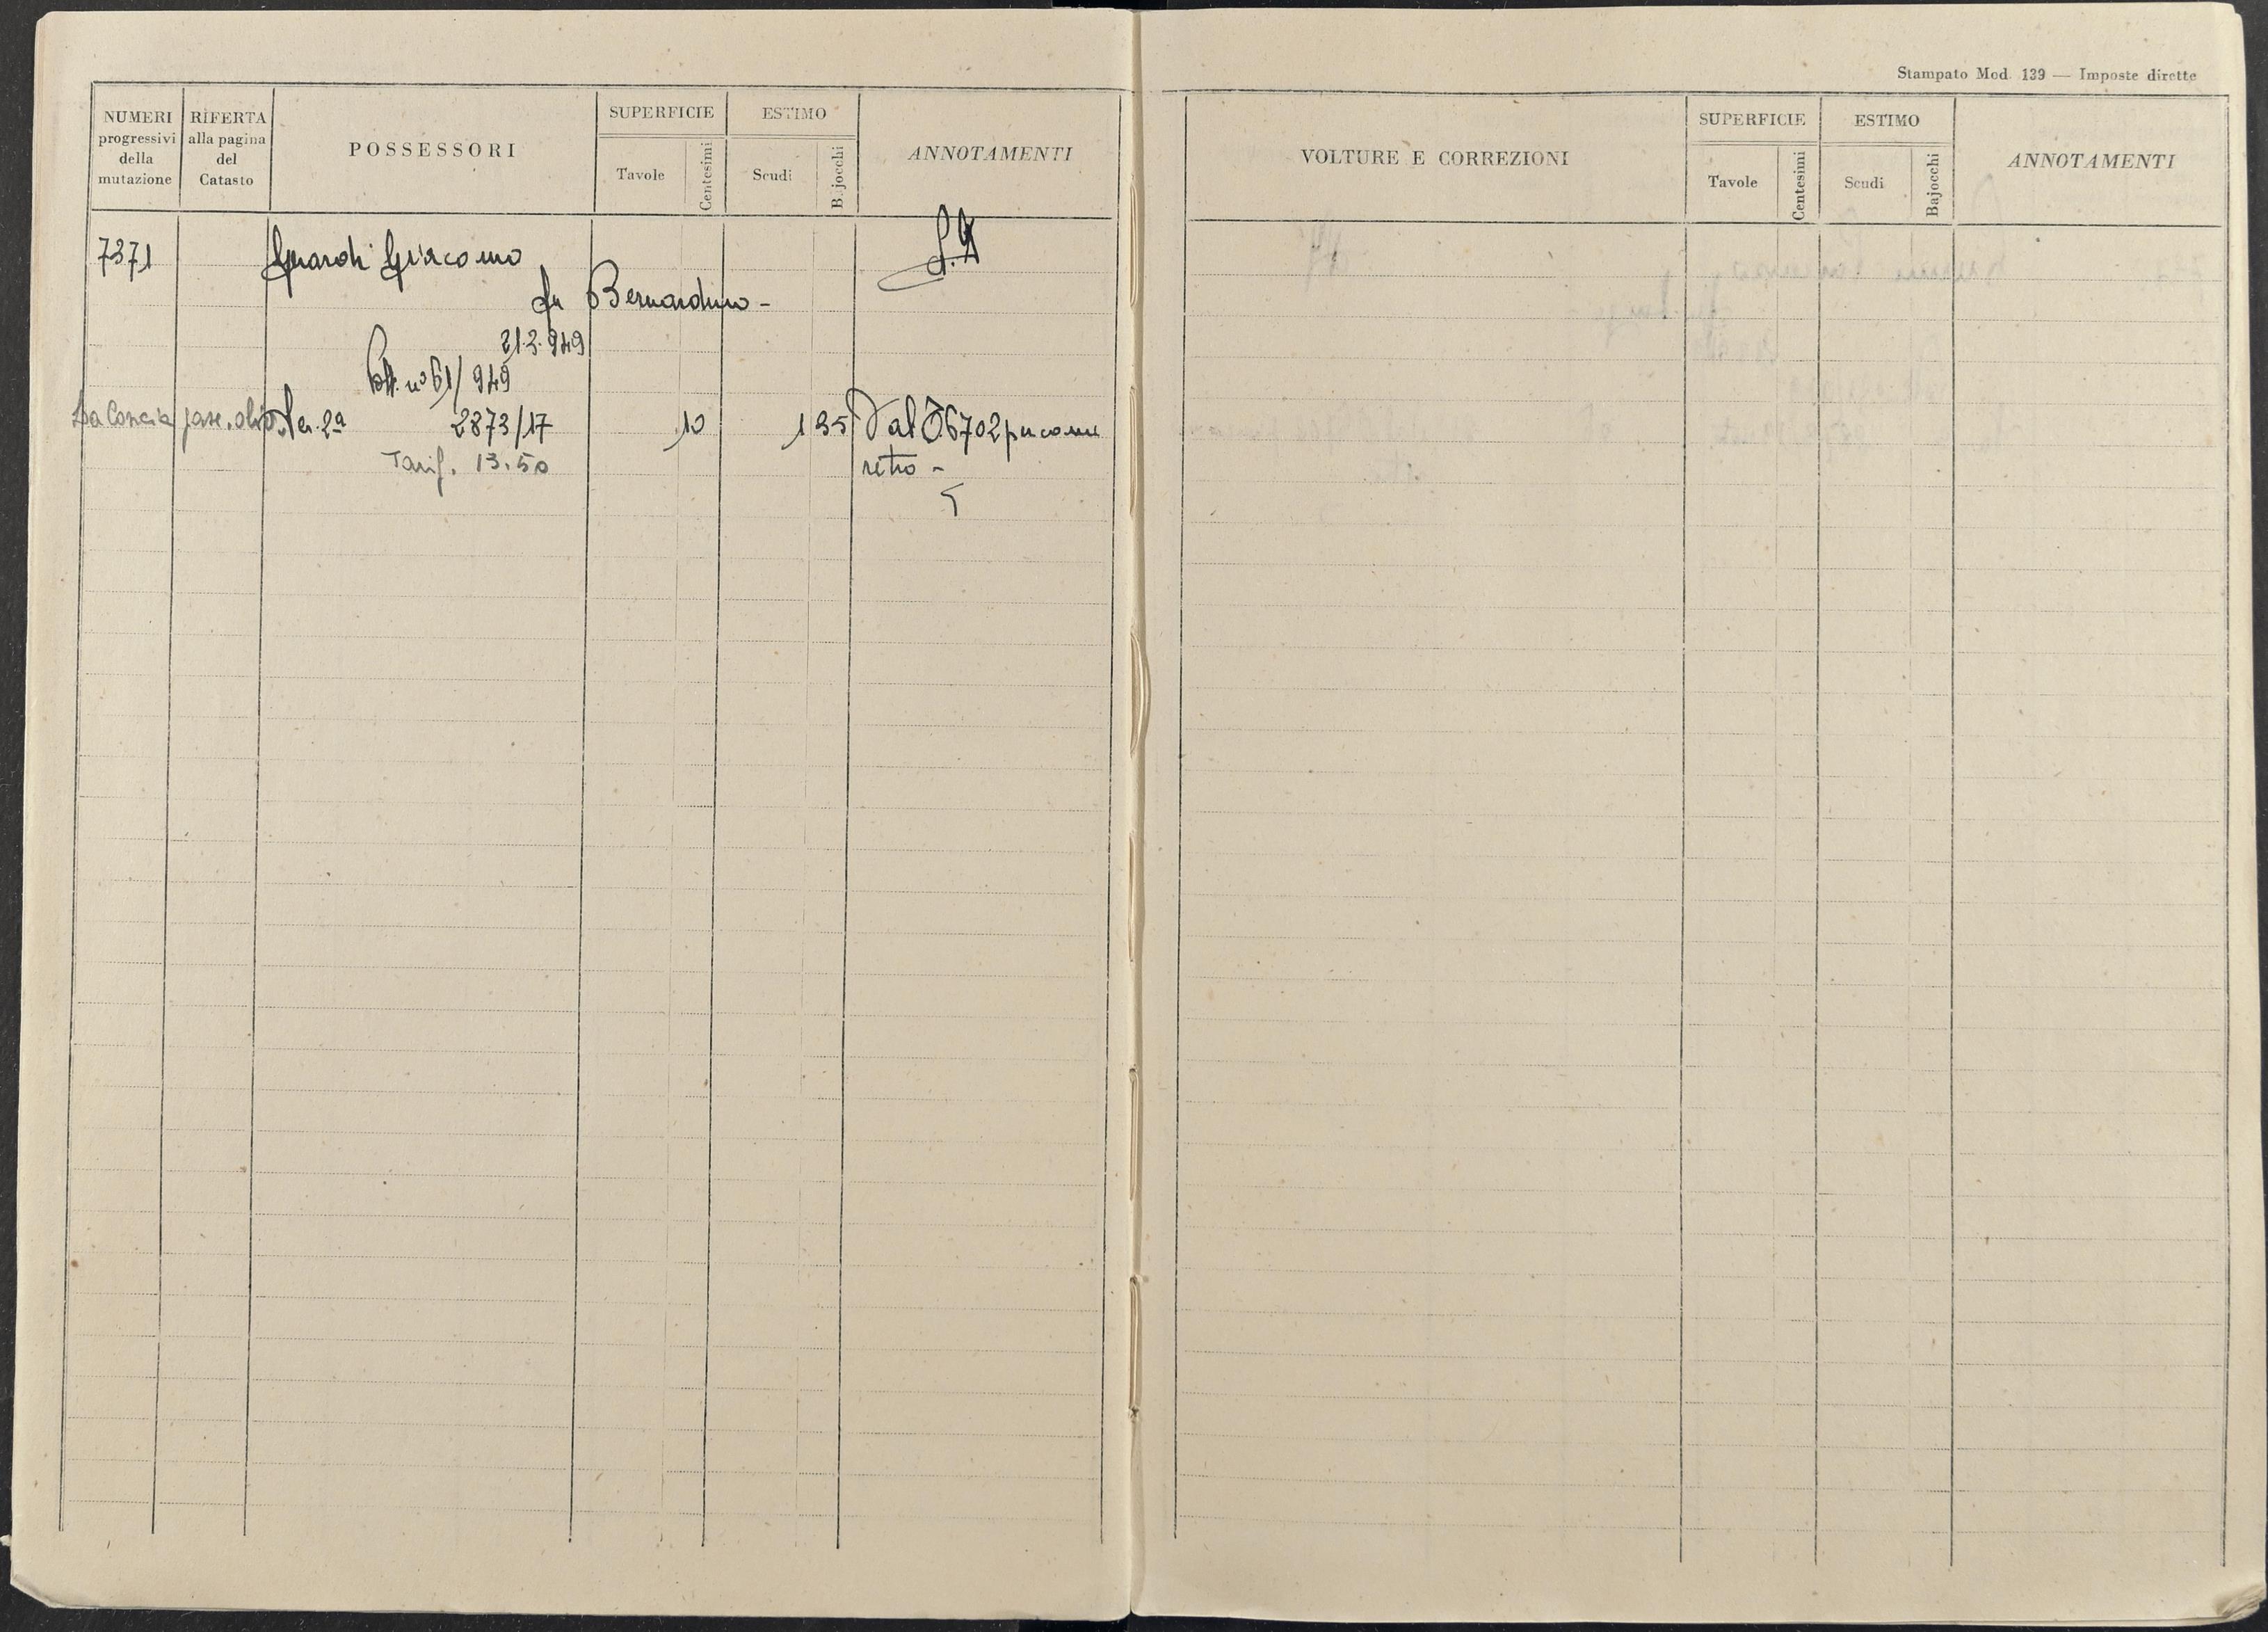 Stampato Mod. 139 — Imposte dirette
NUMERI progressivi della mutazione
RIFERTA alla pagina del Catasto
POSSESSORI
SUPERFICIE
Tavole
Centesimi
ESTIMO
Scudi
Bajocchi
ANNOTAMENTI
VOLTURE E CORREZIONI
SUPERFICIE
Tavole
Centesimi
ESTIMO
Scudi
Bajocchi
ANNOTAMENTI
7371 Giacomo
fu Bernardino -
21.3.949
nº 61/949
La Concia 2ª 2873/17 10 1 35 Dal 6702 per come
Tarif. 13.50 retro -